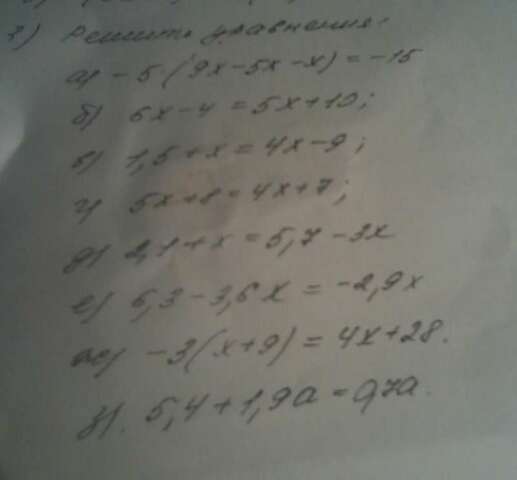 ?) Решить уравнения:
а) -5·(9x-5x-x)=-15
б) 6x-4=5x+10;
в) 1,5+x=4x-9;
г) 5x+8=4x+7;
д) 2,1+x=5,7-3x
е) 6,3-3,6x=-2,9x
ж) -3(x+9)=4x+28.
з). 5,4+1,9a=0,7a.